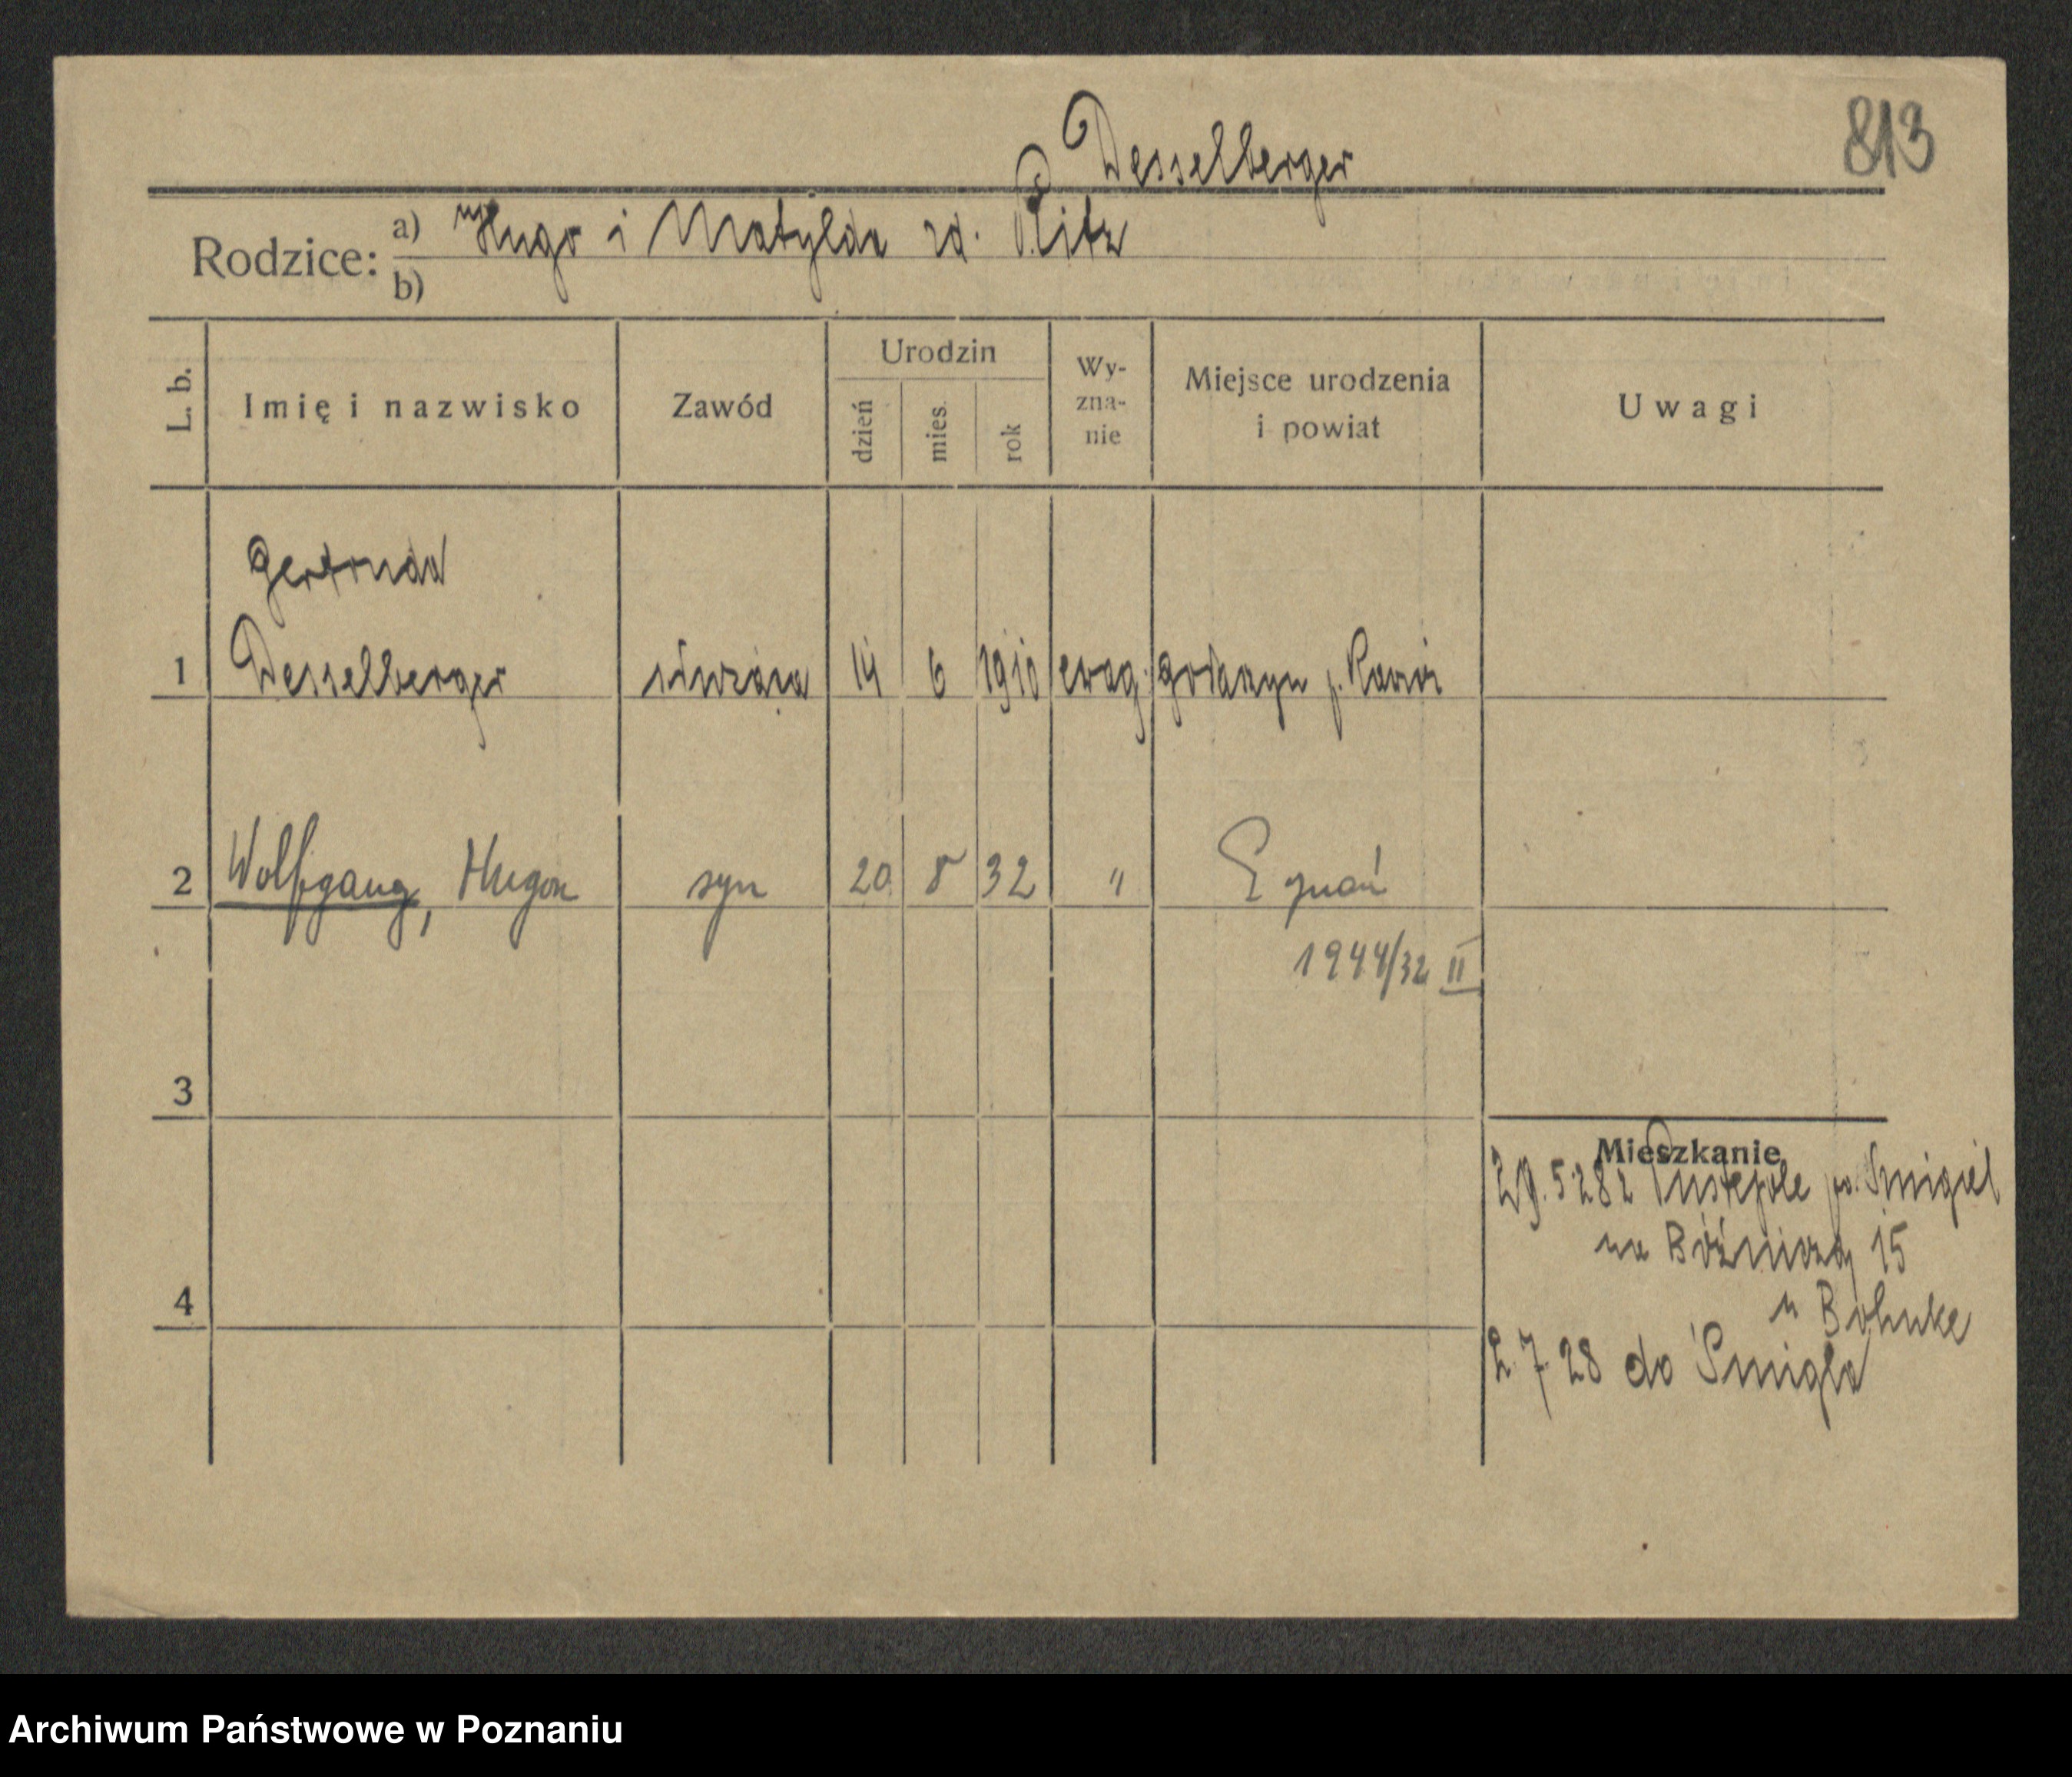 813
Desselberger
Rodzice: a) Hugo i Matylda zd. Plitz
b)
L. b. Imię i nazwisko Zawód Urodzin dzień mies. rok Wy-zna-nie Miejsce urodzenia i powiat Uwagi
Gertruda
1 Desselberger służąca 14 6 1910 ewag. p. Rawicz
2 Wolfgang, Hugon syn 20 8 32 " Poznań
1944/32 II
3
Mieszkanie
29.5.28 z Pustepole po. Śmigiel
na Bóżniczą 15
4
u Bohnke
2.7.28 do Śmigla
Archiwum Państwowe w Poznaniu